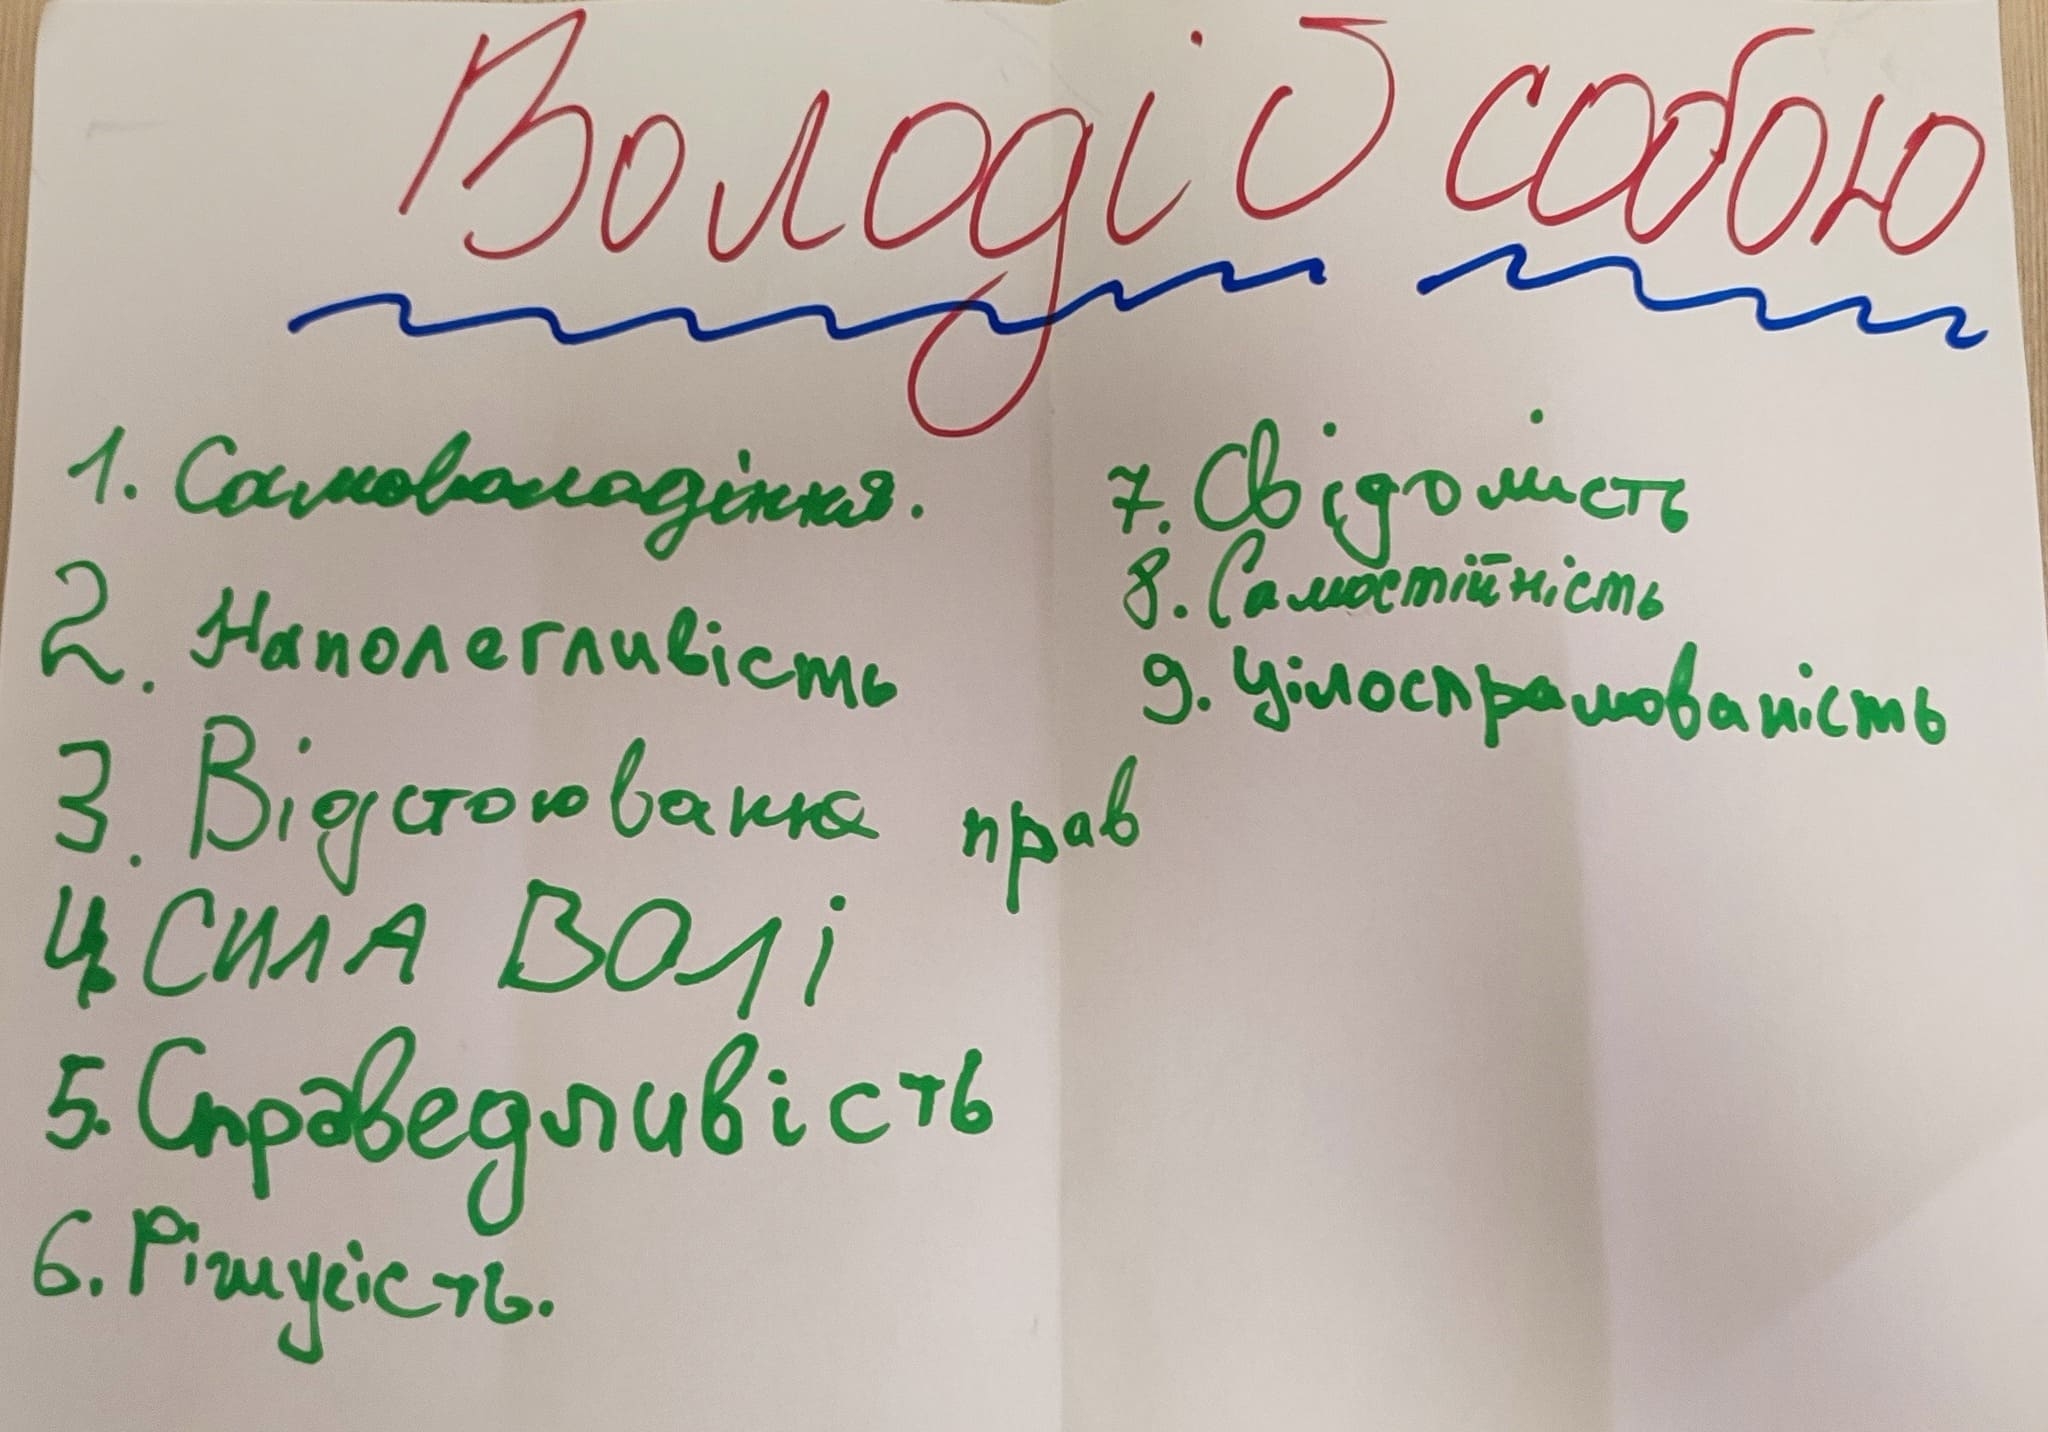 Володій собою
1. Самоволодіння.
2. Наполегливість
3. Відстоювання прав
4. СИЛА ВОЛі
5. Справедливість
6. Рішусість.
7. Свідомість
8. Самостійність
9. Цілоспрамованість